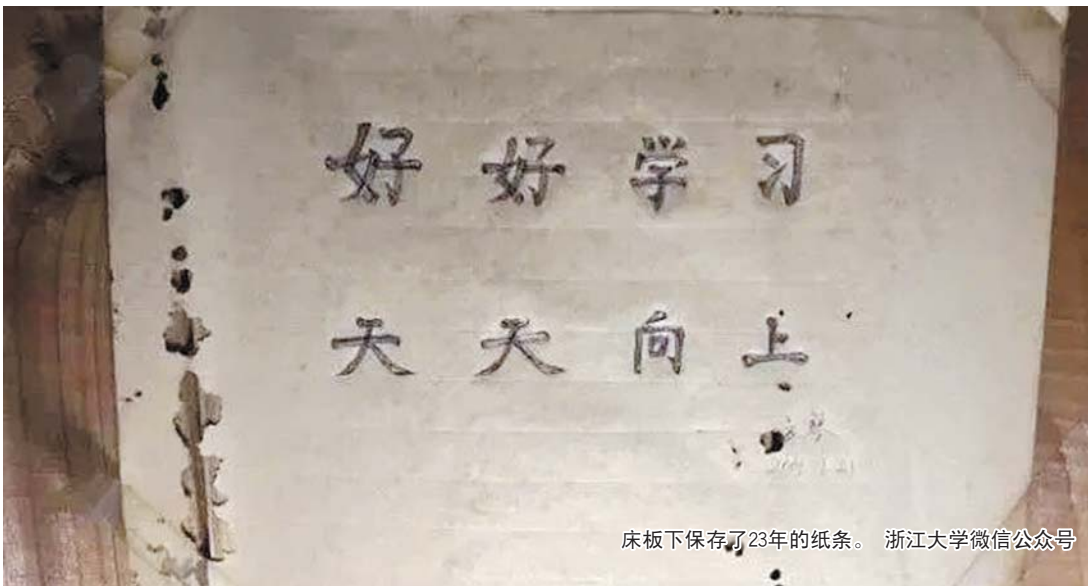 好好学习
天天向上
床板下保存了23年的纸条。 浙江大学微信公众号